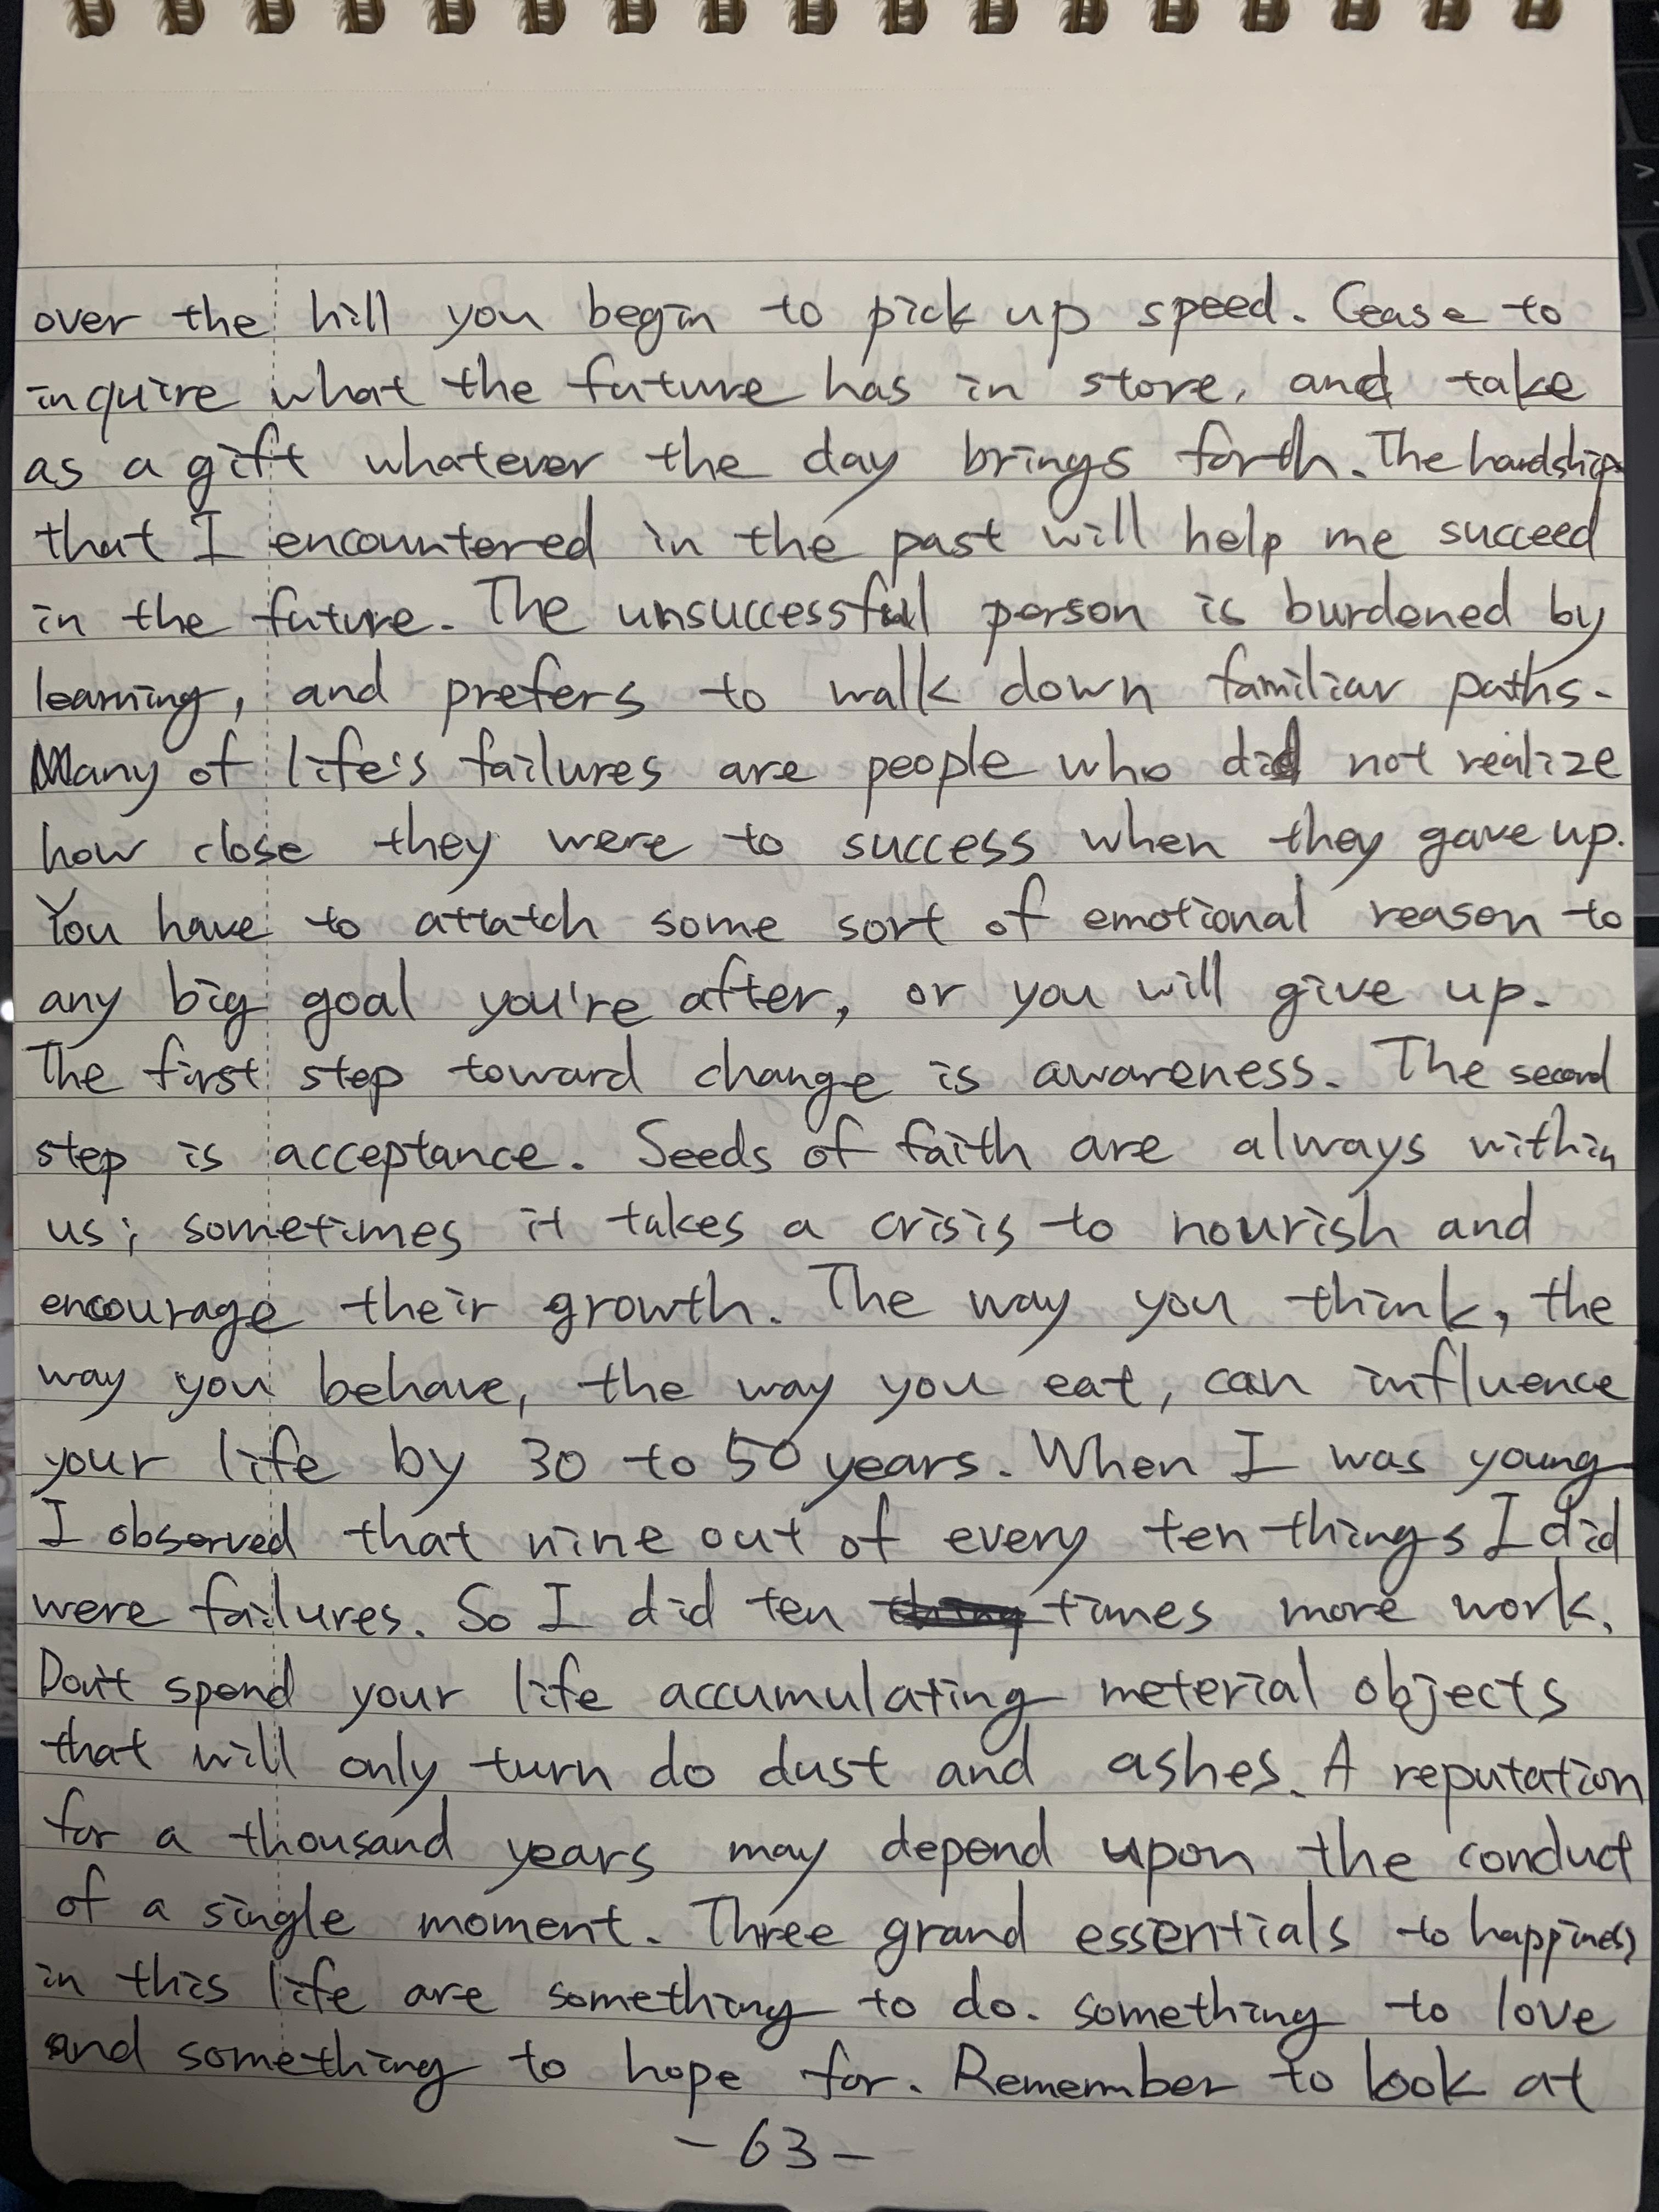 over the hill you begin to pick up speed. Cease to
inquire what the future has in store, and take
as a gift whatever the day brings forth. The hardships
that I encountered in the past will help me succeed
in the future. The unsuccessful person is burdened by
learning, and prefers to walk down familiar paths.
Many of life's failures are people who did not realize
how close they were to success when they gave up.
You have to attatch some sort of emotional reason to
any big goal you're after, or you will give up.
The first step toward change is awareness. The second
step is acceptance. Seeds of faith are always within
us; sometimes it takes a crisis to nourish and
encourage their growth. The way you think, the
way you behave, the way you eat, can influence
your life by 30 to 50 years. When I was young
I observed that nine out of every ten things I did
were failures. So I did ten times more work.
Don't spend your life accumulating meterial objects
that will only turn do dust and ashes. A reputation
for a thousand years may depend upon the conduct
of a single moment. Three grand essentials to happiness
in this life are something to do. something to love
and something to hope for. Remember to look at
- 63 -